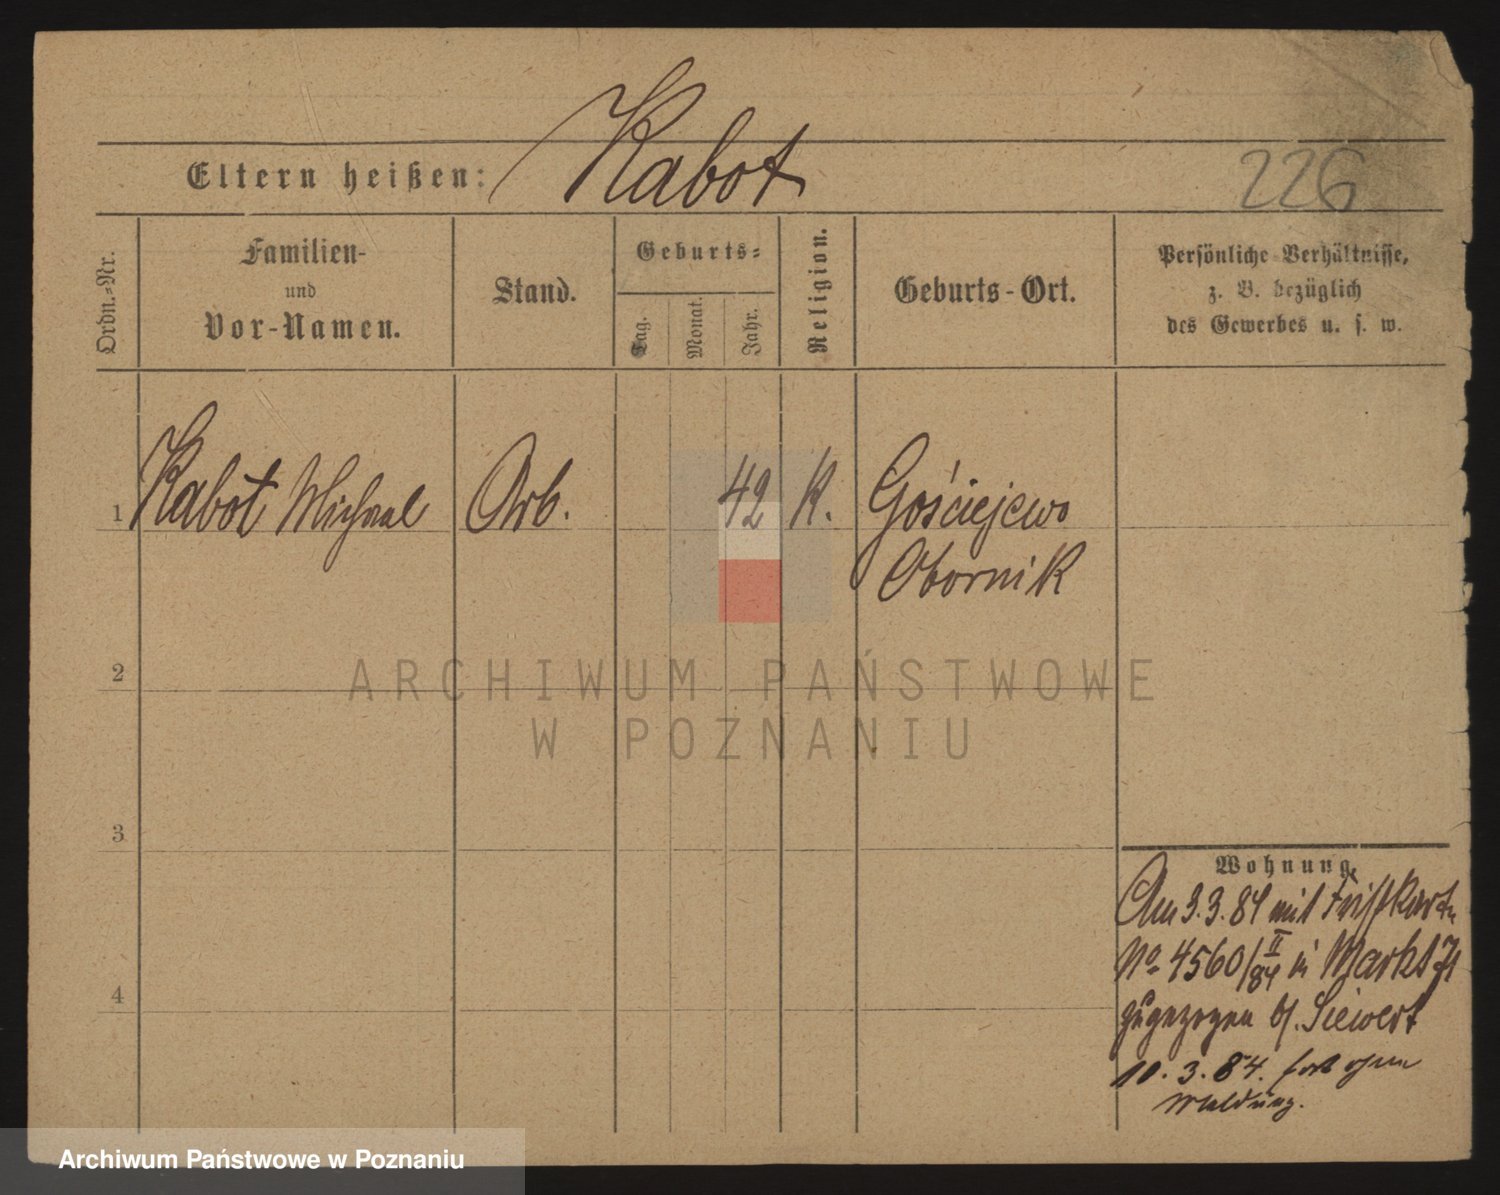 Kabot
Eltern heißen:
226
Ordn.-Nr.
Familien-
und
Vor-Namen.
Stand.
Geburts-
Tag.
Monat.
Jahr.
Religion.
Geburts-Ort.
Persönliche Verhältnisse,
z. B. bezüglich
des Gewerbes u. s. w.
1 Kabot Michael Arb. 42 K. Gościejewo
Obornik
2
ARCHIWUM PAŃSTWOWE
W POZNANIU
3
4
Wohnung.
Am 3.3.84 mit
No 4560/II 84 in Markt
zugezogen b/. Siewert
10.3.84. fort ohne
Meldung.
Archiwum Państwowe w Poznaniu